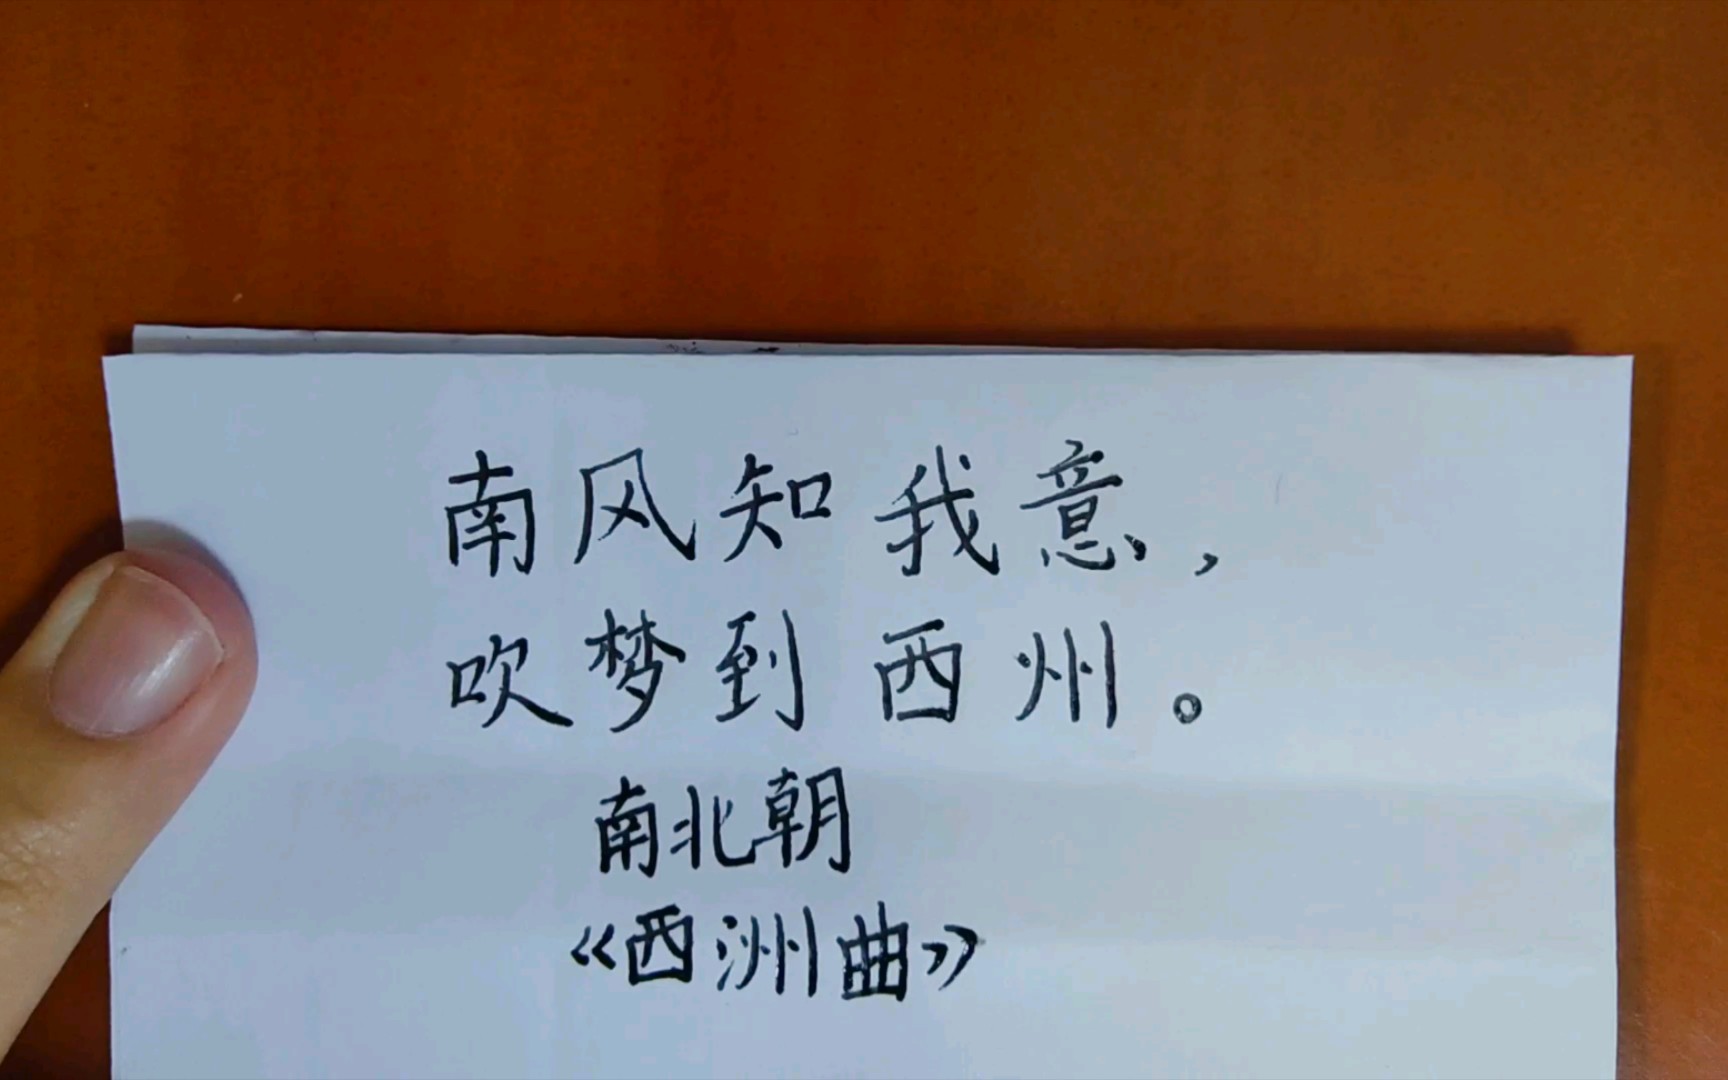 南风知我意，
吹梦到西州。
南北朝
《西洲曲》